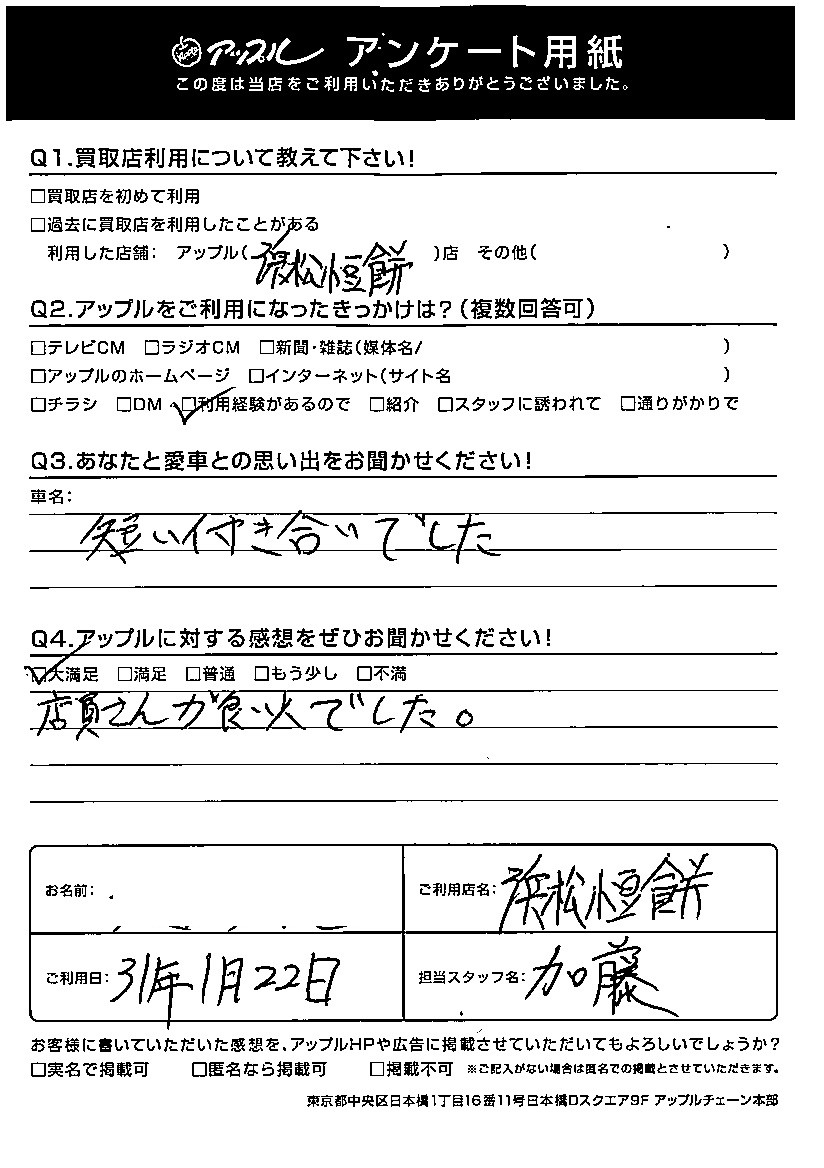 アップル アンケート用紙
この度は当店をご利用いただきありがとうございました。
Q1.買取店利用について教えて下さい!
□買取店を初めて利用
□過去に買取店を利用したことがある
利用した店舗: アップル(浜松小豆餅)店 その他( )
Q2.アップルをご利用になったきっかけは?(複数回答可)
□テレビCM □ラジオCM □新聞・雑誌(媒体名/ )
□アップルのホームページ □インターネット(サイト名 )
□チラシ □DM ☑利用経験があるので □紹介 □スタッフに誘われて □通りがかりで
Q3.あなたと愛車との思い出をお聞かせください!
車名:
短い付き合いでした
Q4.アップルに対する感想をぜひお聞かせください!
☑大満足 □満足 □普通 □もう少し □不満
店員さんが良い人でした。
お名前:
ご利用店名: 浜松小豆餅
ご利用日: 31年1月22日
担当スタッフ名: 加藤
お客様に書いていただいた感想を、アップルHPや広告に掲載させていただいてもよろしいでしょうか?
□実名で掲載可 □匿名なら掲載可 □掲載不可 ※ご記入がない場合は匿名での掲載とさせていただきます。
東京都中央区日本橋1丁目16番11号日本橋Dスクエア9F アップルチェーン本部